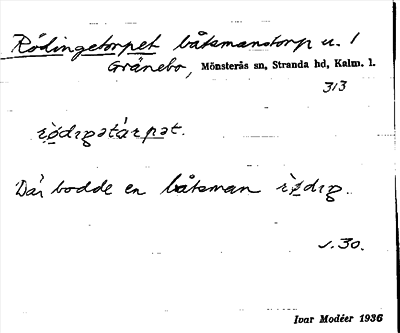 Rödingetorpet båtsmanstorp u. /
Grånebo, Mönsterås sn, Stranda hd, Kalm. l.
313
rø̀dıgətårpət.
Där bodde en båtsman rø̀dıg.
s. 30.
Ivar Modéer 1936